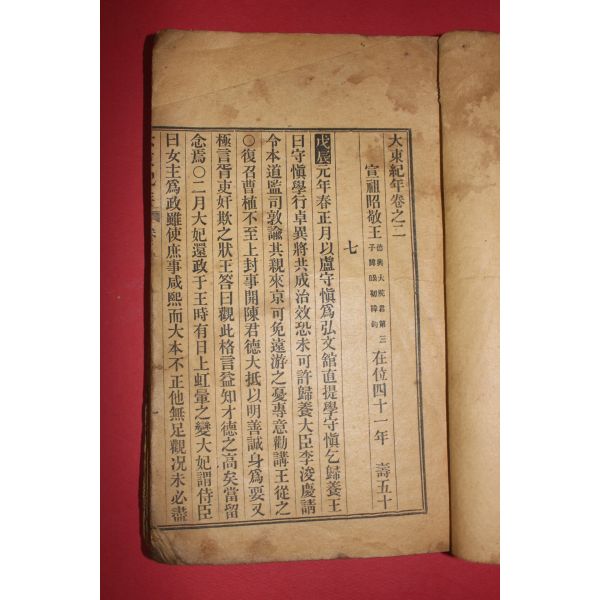 大東紀年卷之二
宣祖昭敬王 德興大院君第三子諱昖初諱鈞 在位四十一年 壽五十
七
戊辰元年春正月以盧守愼爲弘文館直提學守愼乞歸養王
曰守愼學行卓異將共成治效恐未可許歸養大臣李浚慶請
令本道監司敦諭其親來京可免遠游之憂專意勸講王從之
○復召曹植不至上封事開陳君德大抵以明善誠身爲要又
極言胥吏奸欺之狀王答曰觀此格言益知才德之高矣當留
念焉○二月大妃還政于王時有日上虹暈之變大妃謂侍臣
曰女主爲政雖使庶事咸熙而大本不正他無足觀况未必盡